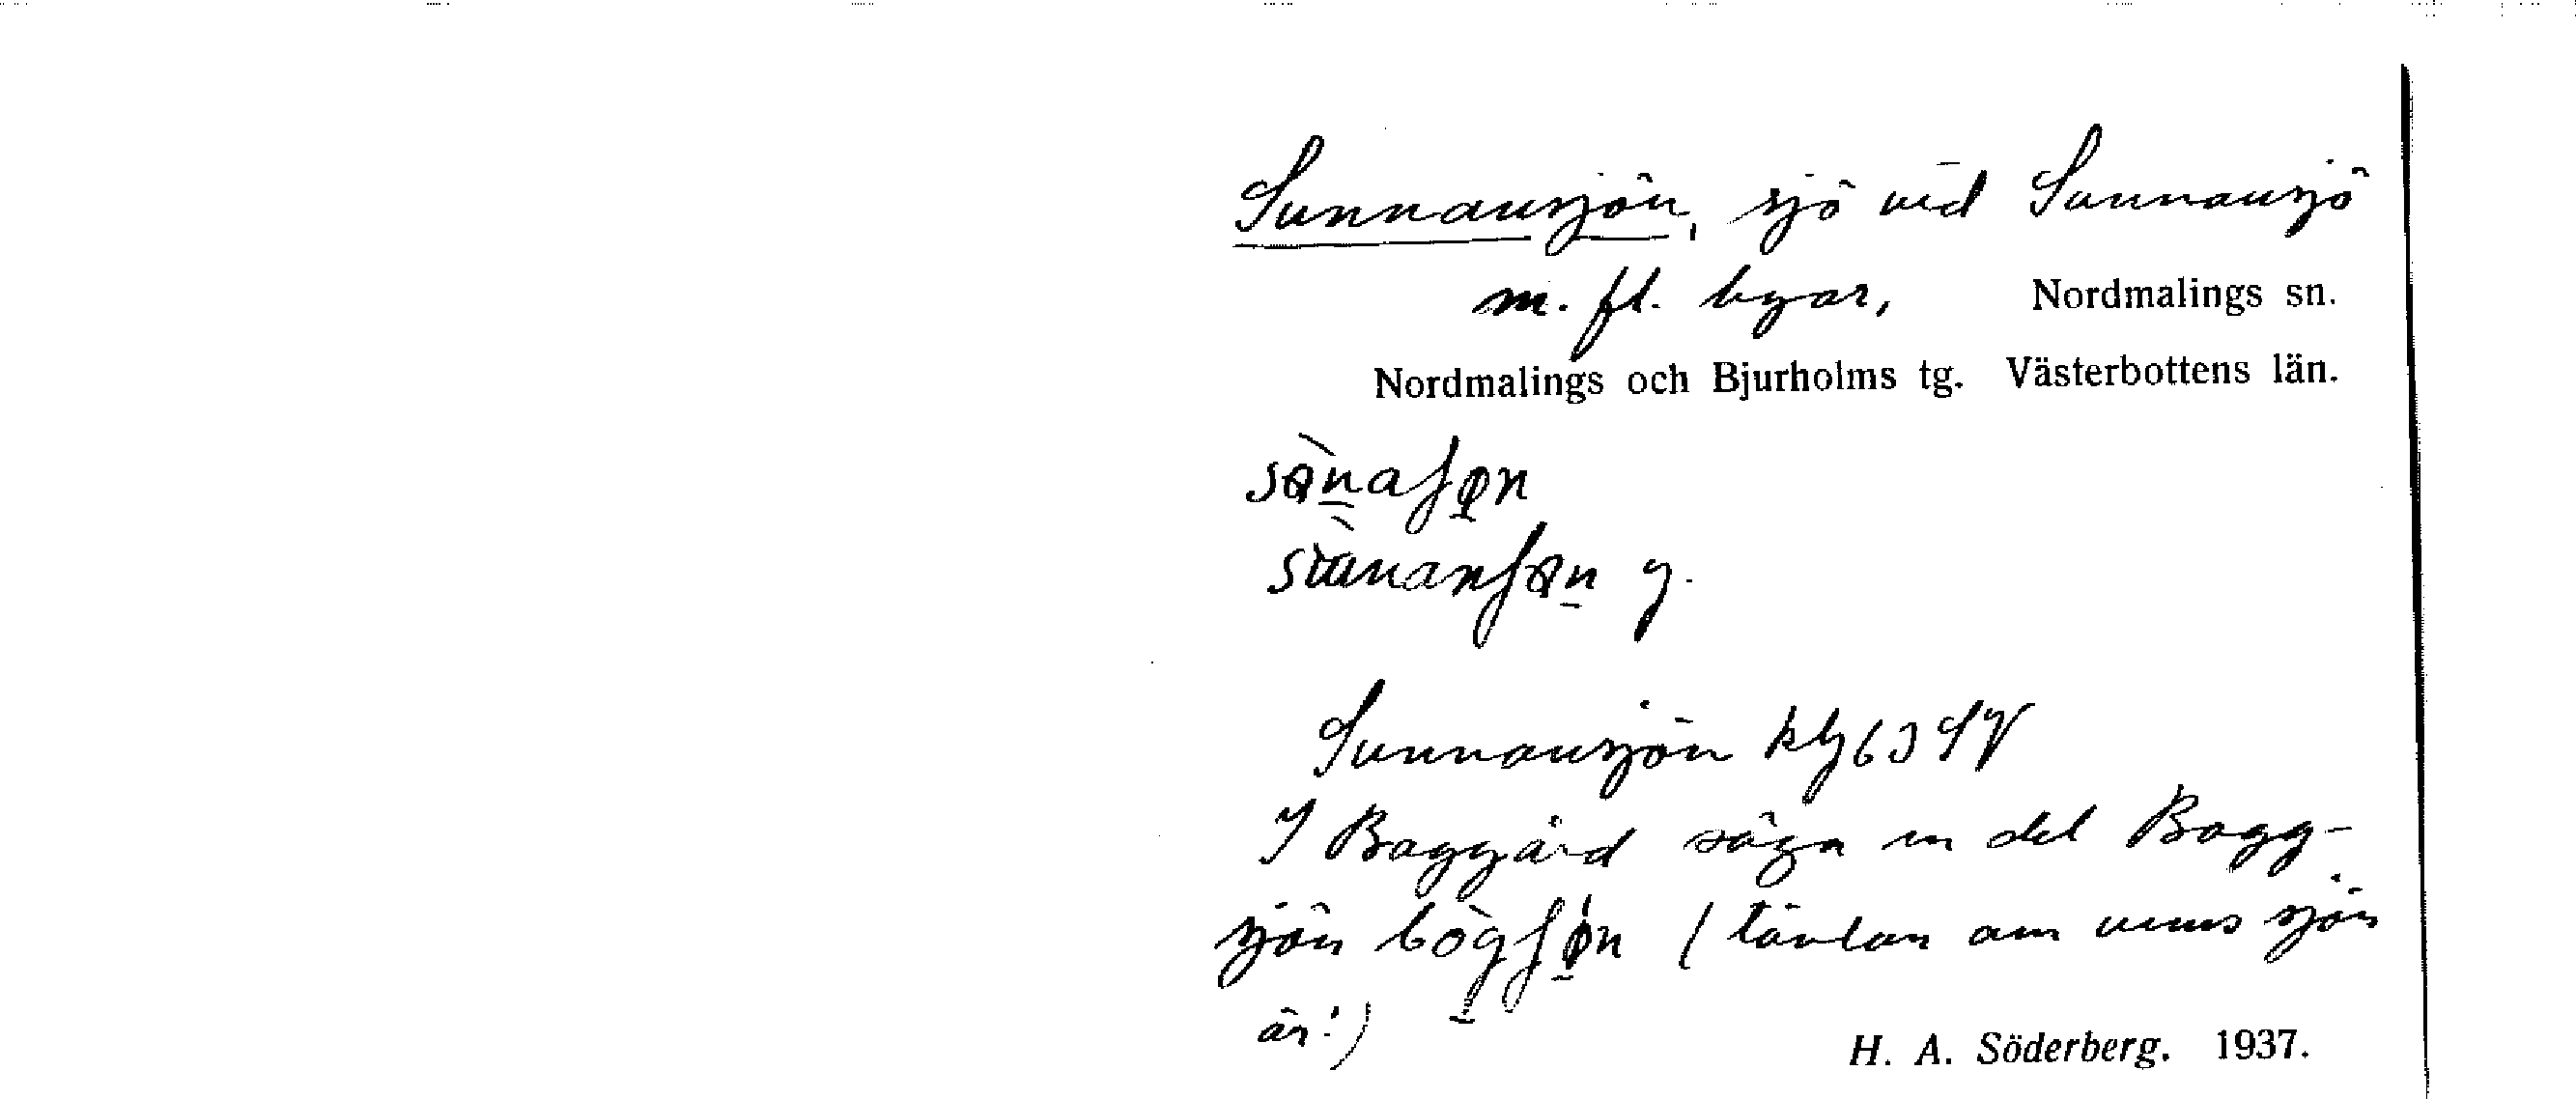 Sunnansjön, sjö vid Sunnansjö
m. fl. byar, Nordmalings sn.
Nordmalings och Bjurholms tg. Västerbottens län.
Sunnansjön kbl 63 SV
I Baggård säga en del Bagg-
sjön (tävlan om vems sjön
är!)
H. A. Söderberg. 1937.